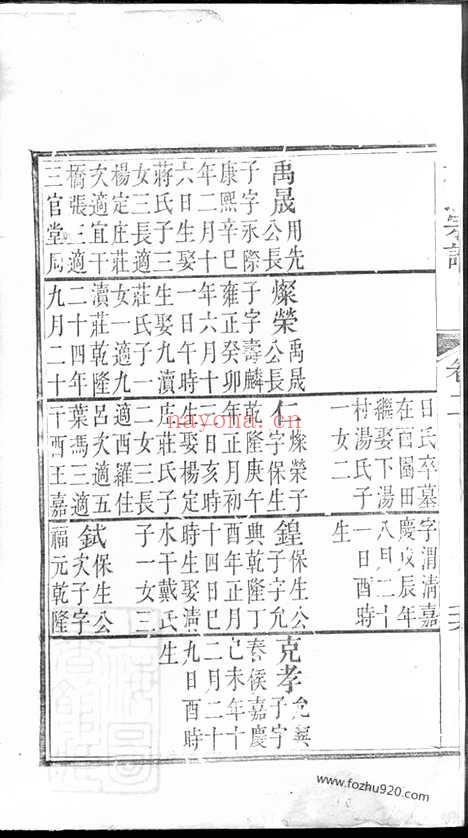 宗譜
卷二
禹晟 用先公長
子字永際
康熙辛巳
年二月十
六日生娶
蔣氏子三
女三長適
楊定庄莊
次適宜干
橋張三適
三官堂周
燦榮 禹晟公長
子字壽麟
雍正癸卯
年六月十
一日午時
生娶九瀆
莊氏子一
女一適九
瀆莊乾隆
二十四年
九月二十
日氏卒墓
在酉園田
繼娶下湯
村湯氏子
一女二
仁 燦榮子
字保生
乾隆庚午
年正月初
三日亥時
生娶楊定
庄莊氏子
二女三長
適西羅任
呂次適五
葉馮三適
干酉王嘉
字渭清嘉
慶戊辰年
八月二十
一日酉時
生
鍠 保生公
長子字允
典乾隆丁
酉年正月
十四日巳
時生娶溝
水干戴氏
子一女三
鉽 保生公
次子字
福元乾隆
克孝 允典
子字
春俟嘉慶
己未年十
二月二十
九日酉時
生
nayona.cn
www.fozhu920.com